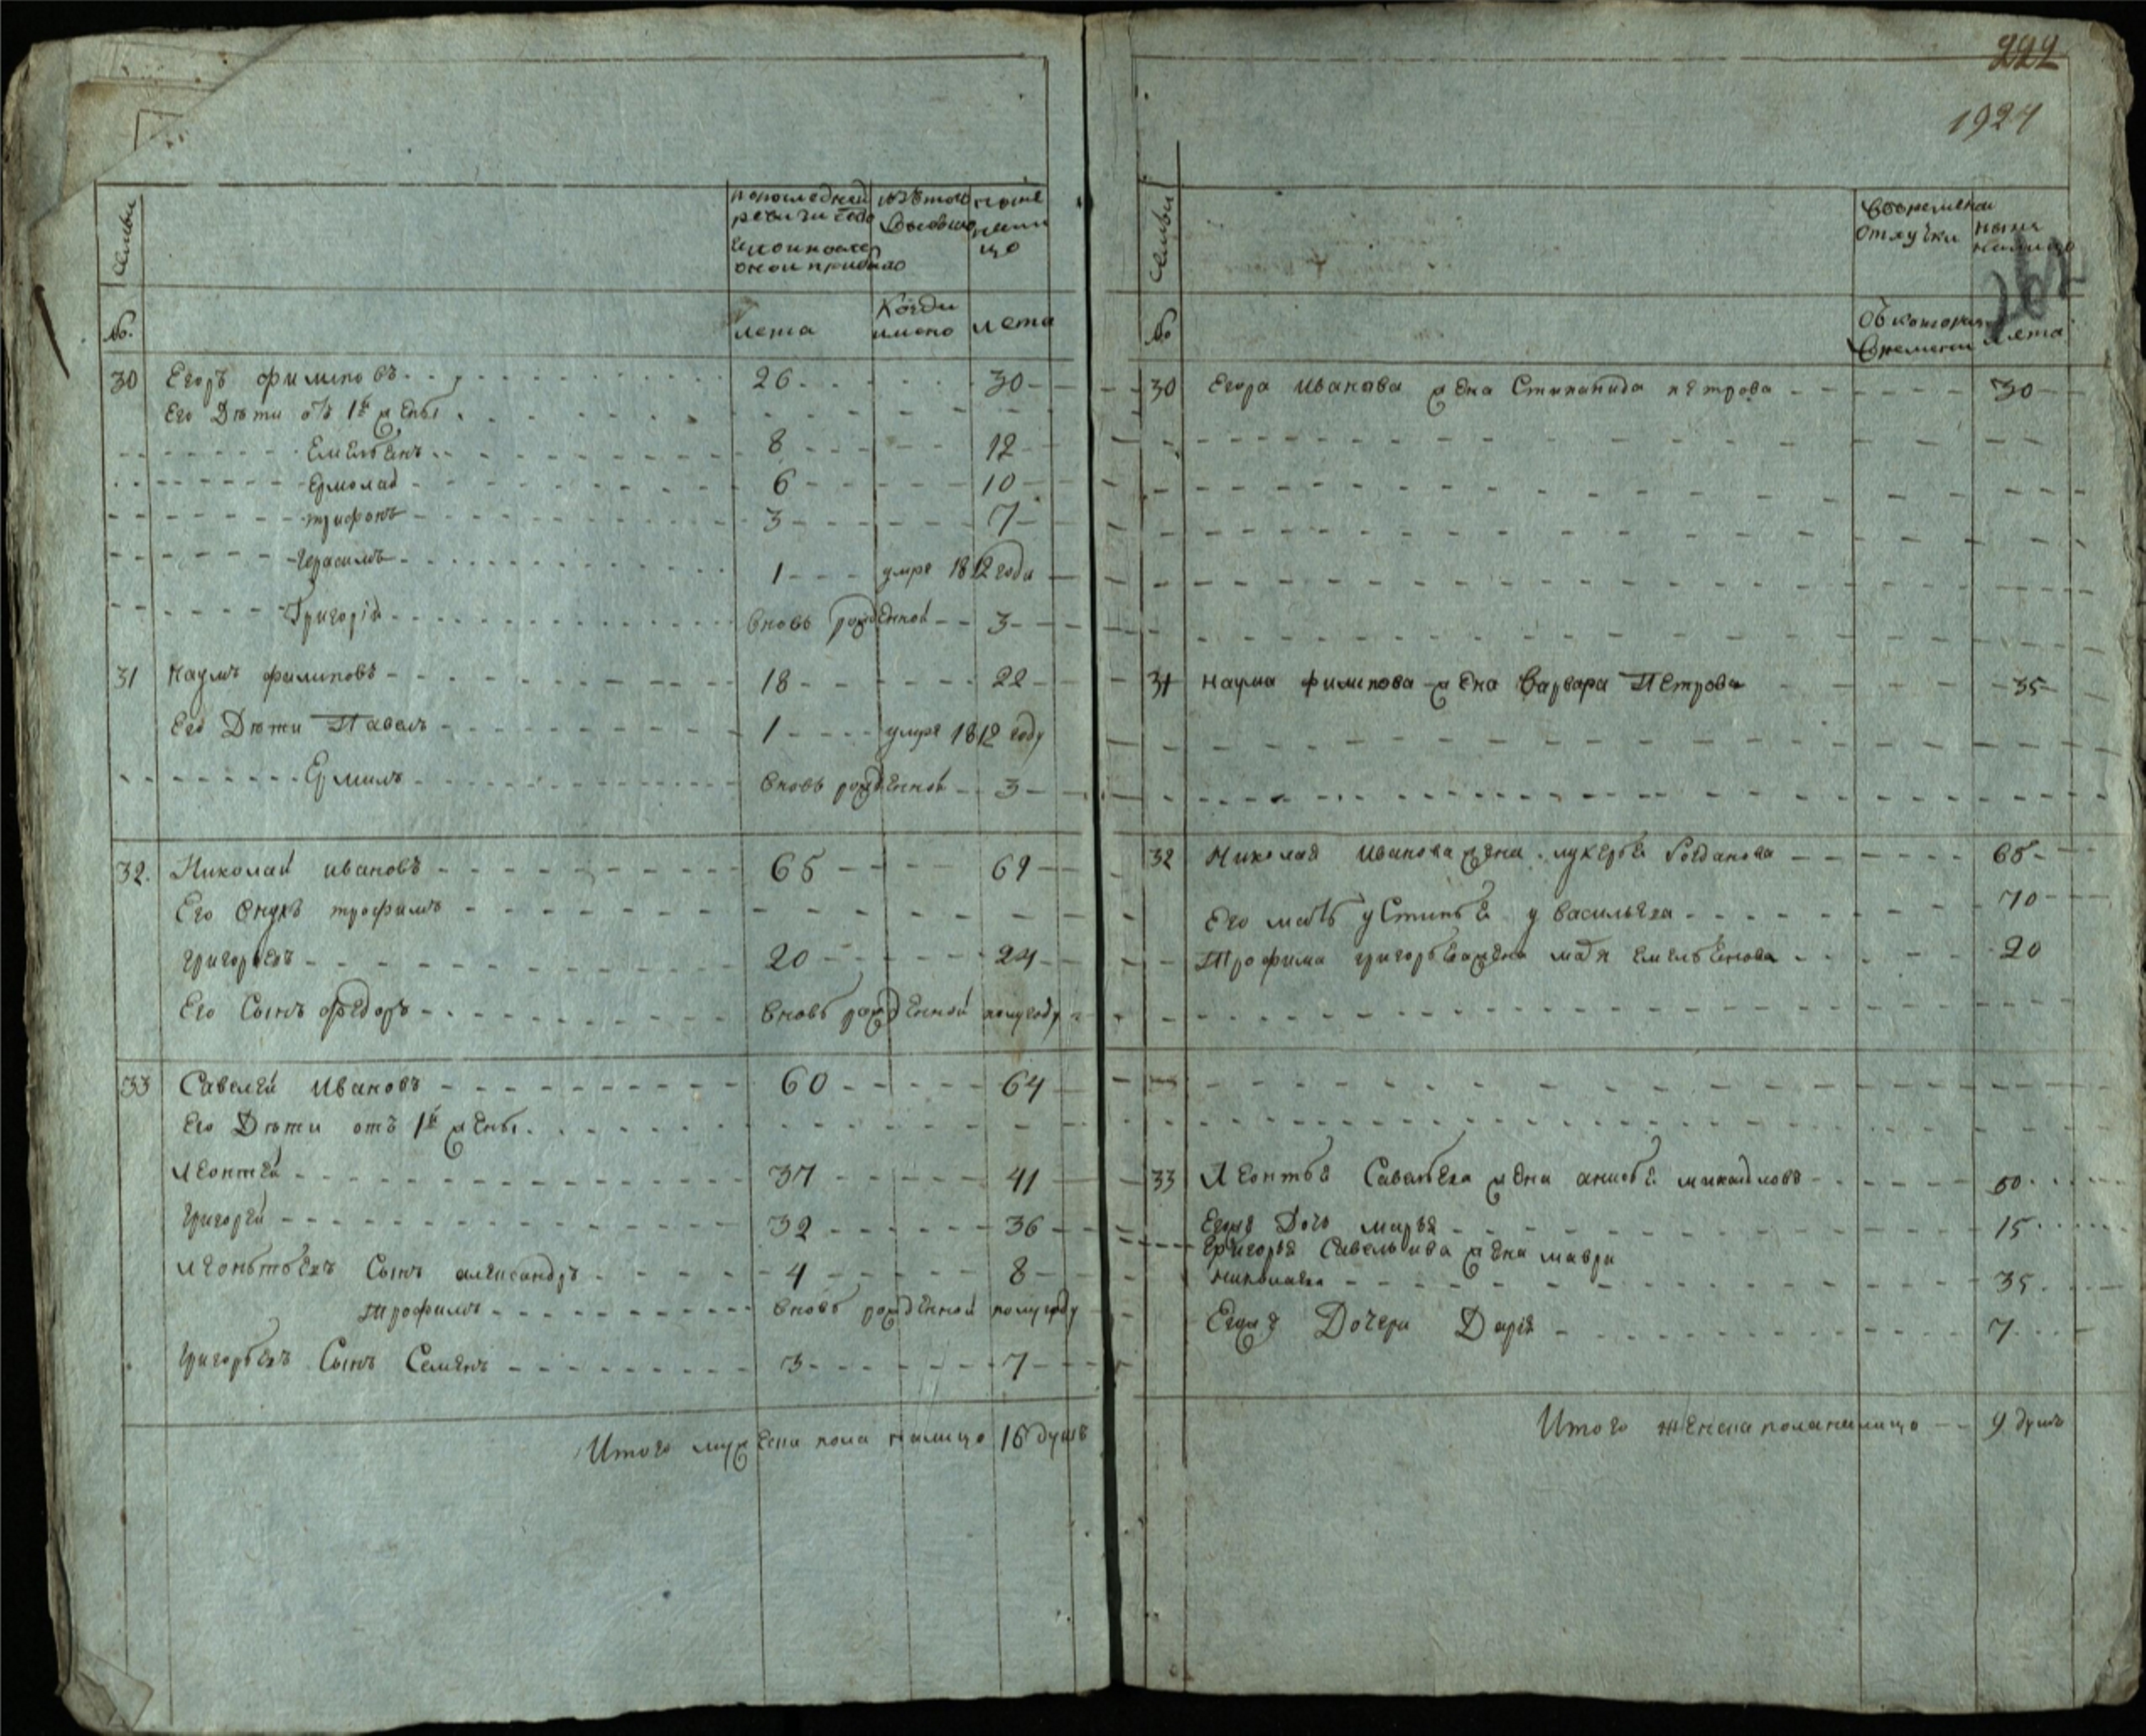 222
1924
262
Семьи
по последней
ревизии состо
яло и после
оной прибыло
изъ того
выбыло
ныне
на ли
цо
№.
лета
Когда
имено
лета
30 Егоръ филиповъ 26 30
Его Дѣти отъ 1й жены
Емельѣнъ 8 12
Ермолай 6 10
трифонъ 3 7
Герасимъ 1 умре 1812 года
Григорій вновь рожденной 3
31 Наумъ филиповъ 18 22
Его Дѣти Павелъ 1 умре 1812 году
Ермилъ вновь рожденной 3
32. Николай ивановъ 65 69
Его внукъ трофимъ
григорьевъ 20 24
Его Сынъ федоръ вновь рожденной полугоду
33 Савелей Ивановъ 60 64
Его Дѣти отъ 1й жены
Леонтей 37 41
Григорей 32 36
Леонтьевъ Сынъ александръ 4 8
Трофимъ вновь рожденной полугоду
Григорьевъ Сынъ Семенъ 3 7
Итого мужеска пола налицо 16 душъ
Семьи
Вовременной
отлучки
ныне
налицо
№
Съ котораго
времени
лета
30 Егора Иванава жена Стипанида петрова 30
31 Наума филипова жена Варвара Петрова 35
32 Николая Иванова жена лукерье богданова 68
Его мать устинье у васильева 70
Трофима григорьева жена мадя емельенова 20
33 Леонтье Савельева жена анисье михайловъ 50
Егоже Дочь марья 15
Григорья Савельива жена мавра
николаева 35
Егоже Дочери Дарія 7
Итого женска пола налицо 9 душъ